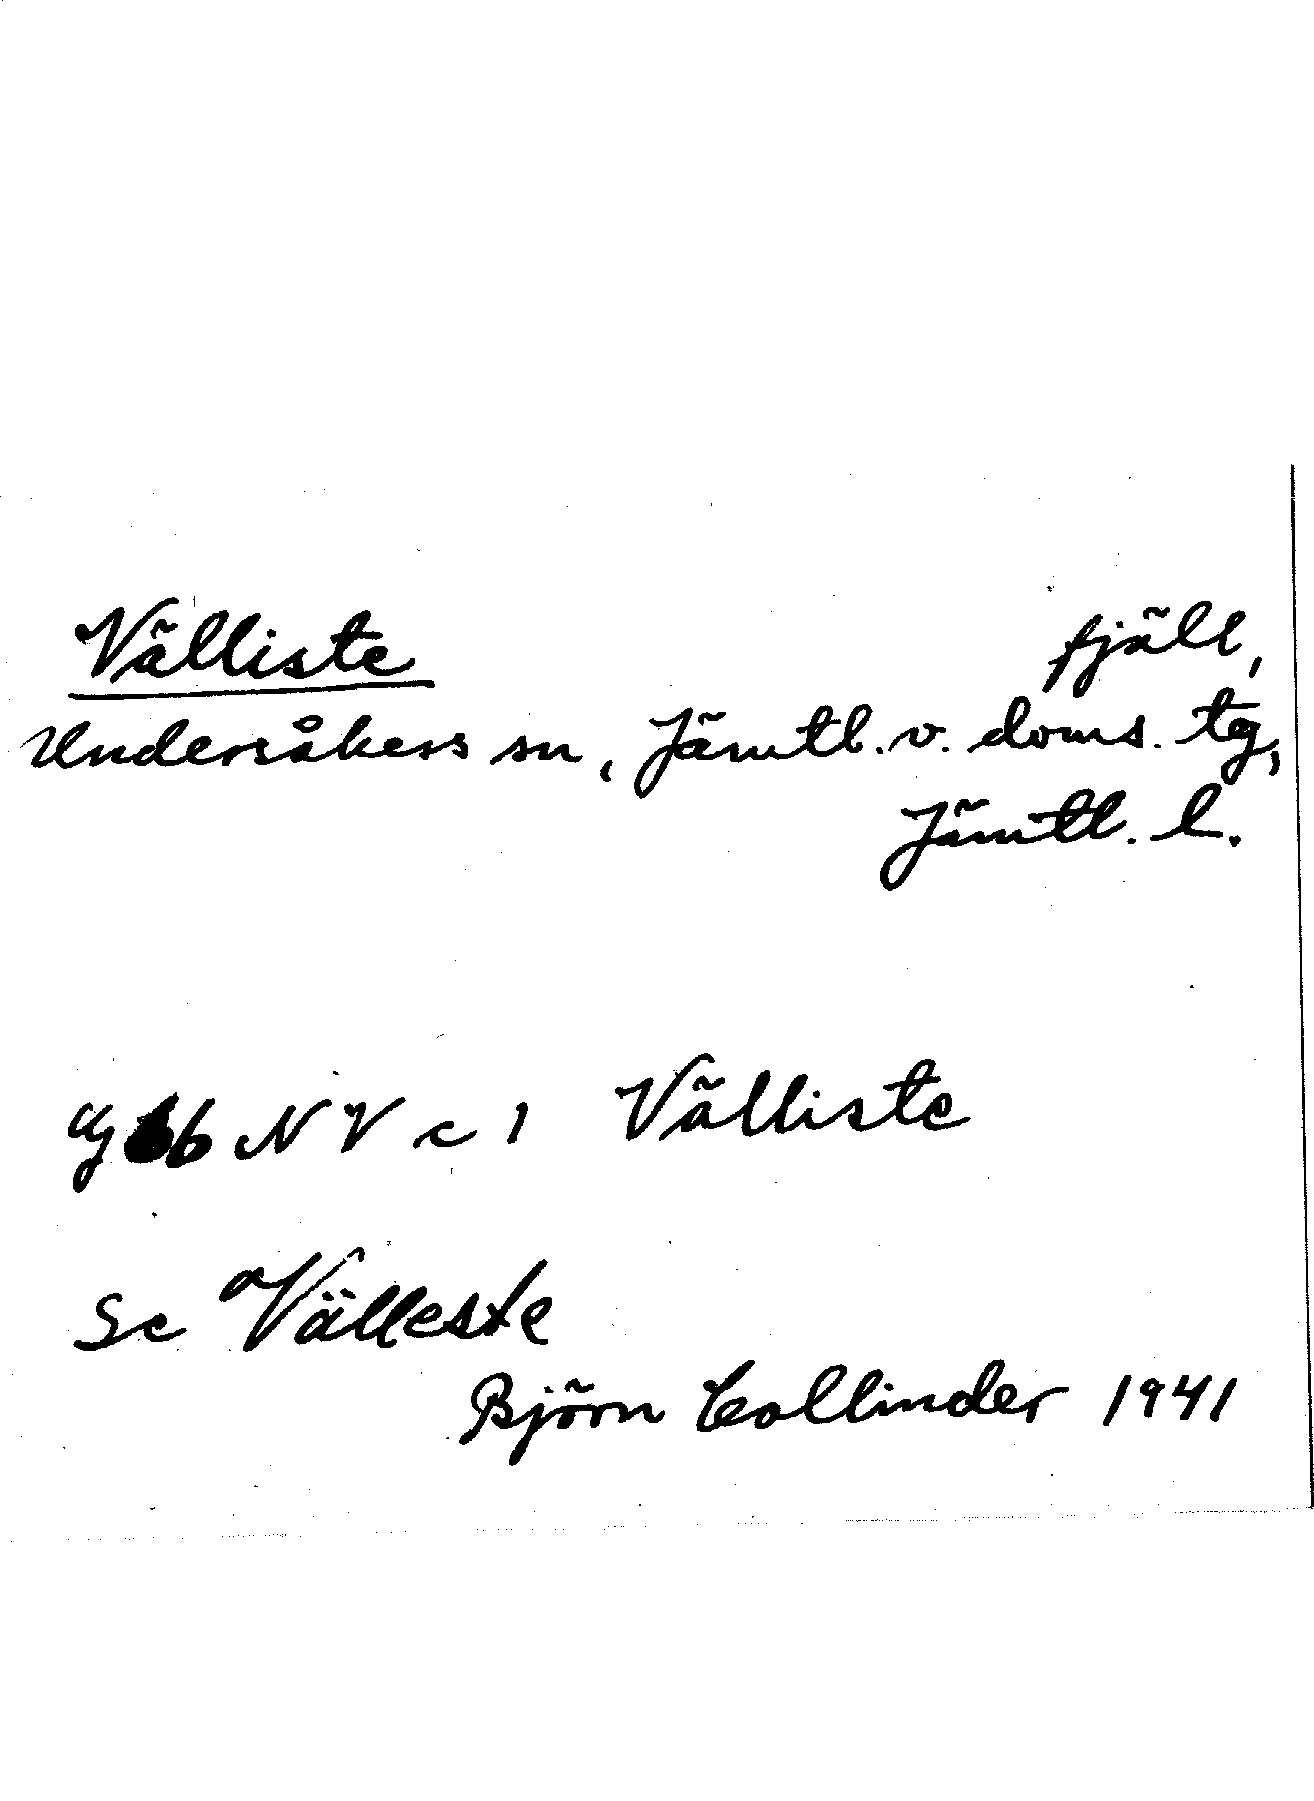 Välliste fjäll,
Undersåkers sn, Jämtl. v. doms. tg,
Jämtl. l.
66 NV c 1 Välliste
Se Välleste
Björn Collinder 1941